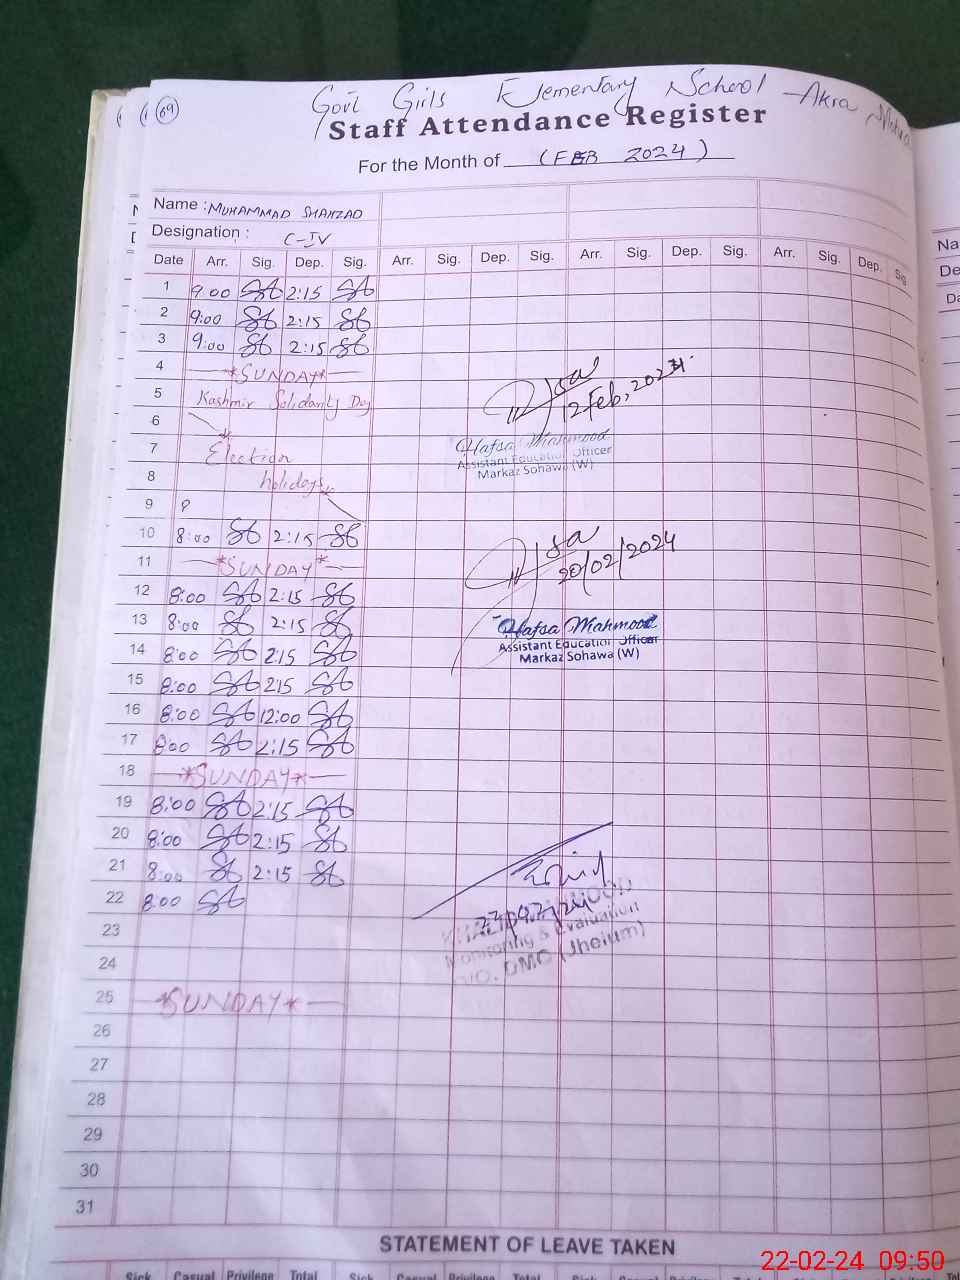 69
Govt Girls Elementary School Akra
Staff Attendance Register
For the Month of (FEB 2024)
Name : MUHAMMAD SHAHZAD
Designation : C-IV
Date Arr. Sig. Dep. Sig. Arr. Sig. Dep. Sig. Arr. Sig. Dep. Sig. Arr. Sig. Dep. Sig
1 9:00 2:15
2 9:00 2:15
3 9:00 2:15
4 *SUNDAY*
5 Kashmir Solidarity Day
6
7 Election
8 holidays
9
10 8:00 2:15
11 *SUNDAY*
12 8:00 2:15
13 8:00 2:15
14 8:00 2:15
15 8:00 2:15
16 8:00 12:00
17 8:00 2:15
18 *SUNDAY*
19 8:00 2:15
20 8:00 2:15
21 8:00 2:15
22 8:00
23
24
25 *SUNDAY*
26
27
28
29
30
31
Hafsa Mahmood
Assistant Education Officer
Markaz Sohawa (W)
20/02/2024
Hafsa Mahmood
Assistant Education Officer
Markaz Sohawa (W)
Monitoring & Evaluation
DMO (Jhelum)
STATEMENT OF LEAVE TAKEN
Sick Casual Privilege Total Sick Casual Privilege Total Sick Casual
22-02-24 09:50
Na
De
Da